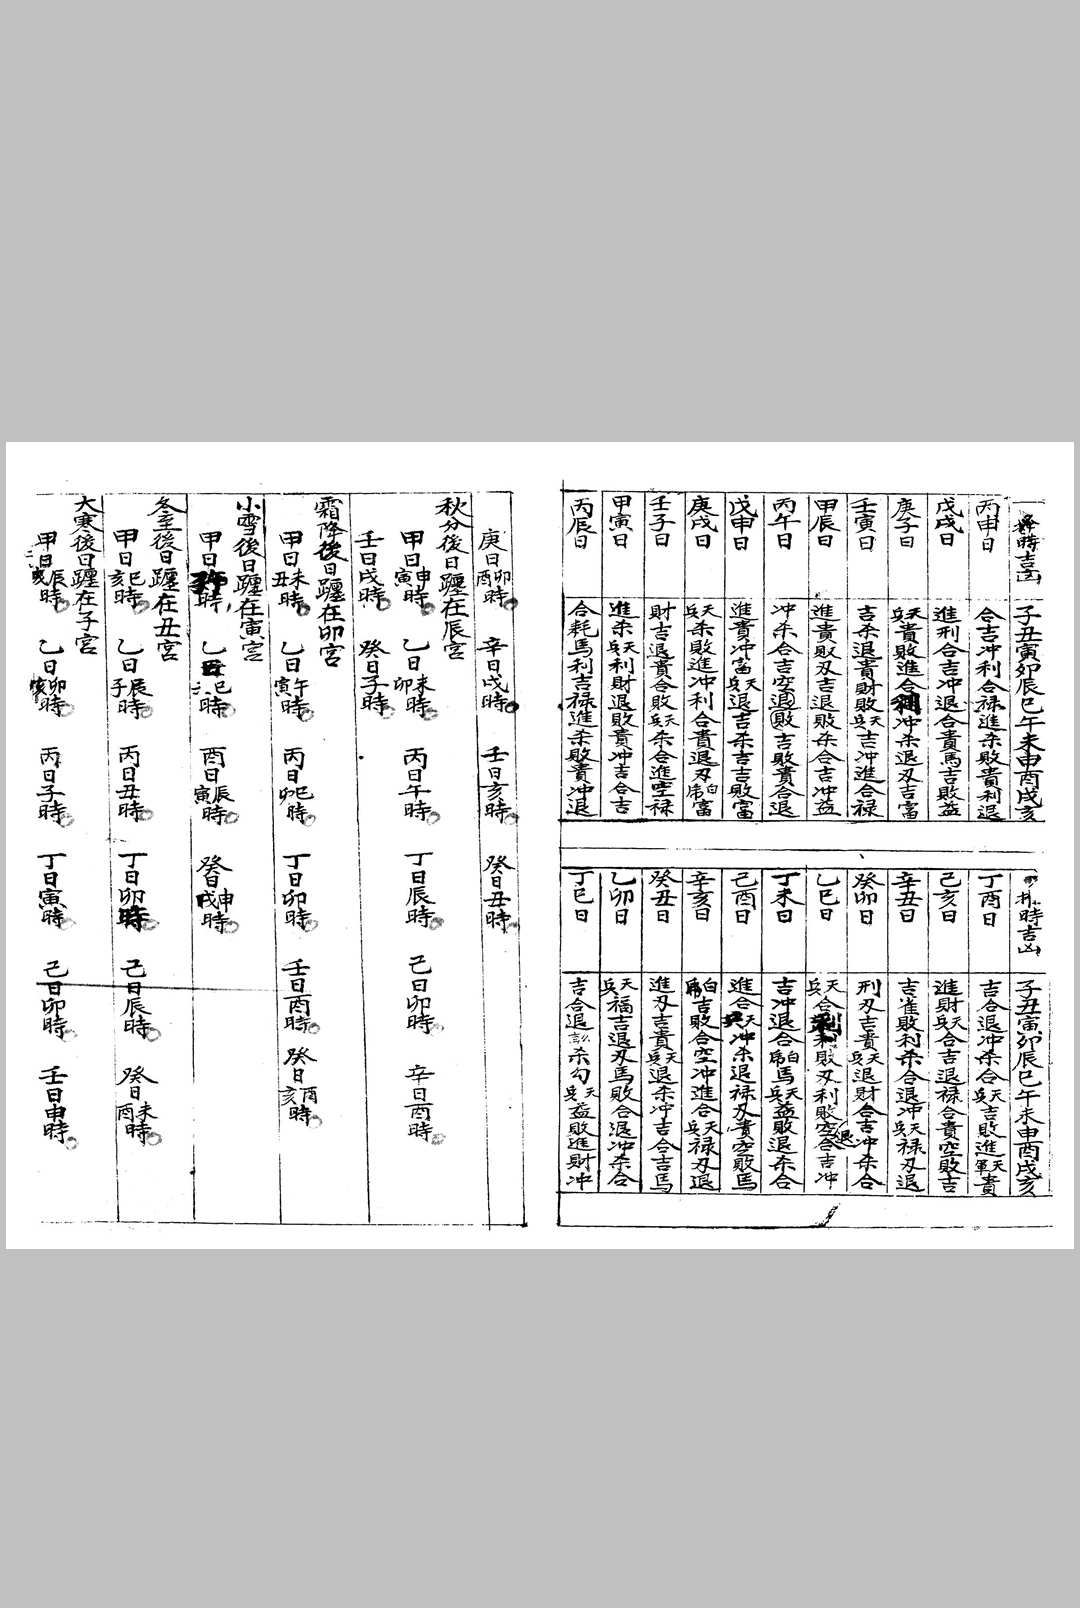 時吉凶 子丑寅卯辰巳午未申酉戌亥
丙申日 合吉冲利合禄進杀敗貴利退
戊戌日 進刑合吉冲退合貴馬吉敗益
庚子日 天兵貴敗進合冲杀退刃吉富
壬寅日 吉杀退貴財敗天兵吉冲進合禄
甲辰日 進貴敗刃吉退敗杀合吉冲益
丙午日 冲杀合吉空退敗吉敗貴合退
戊申日 進貴冲富天兵退吉杀吉吉敗富
庚戌日 天兵杀敗進冲利合貴退刃白虎富
壬子日 財吉退貴合敗天兵杀合進空禄
甲寅日 進杀天兵利財退敗貴冲吉合吉
丙辰日 合耗馬利吉禄進杀敗貴冲退
時吉凶 子丑寅卯辰巳午未申酉戌亥
丁酉日 吉合退冲杀合天兵吉敗進天軍貴
己亥日 進財天兵合吉退禄合貴空敗吉
辛丑日 吉雀敗利杀合退冲天兵禄刃退
癸卯日 刑刃吉貴天兵退財合吉冲杀合
乙巳日 天兵合利敗刃利敗空退合吉冲
丁未日 吉冲退合白虎馬天兵益敗退杀合
己酉日 進合天兵冲杀退禄刃貴空敗馬
辛亥日 白虎吉敗合空冲進合天兵禄刃退
癸丑日 進刃吉貴天兵退杀冲吉合吉馬
乙卯日 天兵福吉退刃馬敗合退冲杀合
丁巳日 吉合退訟杀勾天兵益敗進財冲
庚日卯酉時 辛日戌時 壬日亥時 癸日丑時
秋分後日躔在辰宮
甲日申寅時 乙日未卯時 丙日午時 丁日辰時 己日卯時 辛日酉時
壬日戌時 癸日子時
霜降後日躔在卯宮
甲日未丑時 乙日午寅時 丙日巳卯時 丁日卯時 壬日酉時 癸日酉亥時
小雪後日躔在寅宮
甲日時 乙日巳時 酉日辰寅時 癸日申戌時
冬至後日躔在丑宮
甲日巳亥時 乙日辰子時 丙日丑時 丁日卯時 己日辰時 癸日未酉時
大寒後日躔在子宮
甲日辰時 乙日卯時 丙日子時 丁日寅時 己日卯時 壬日申時